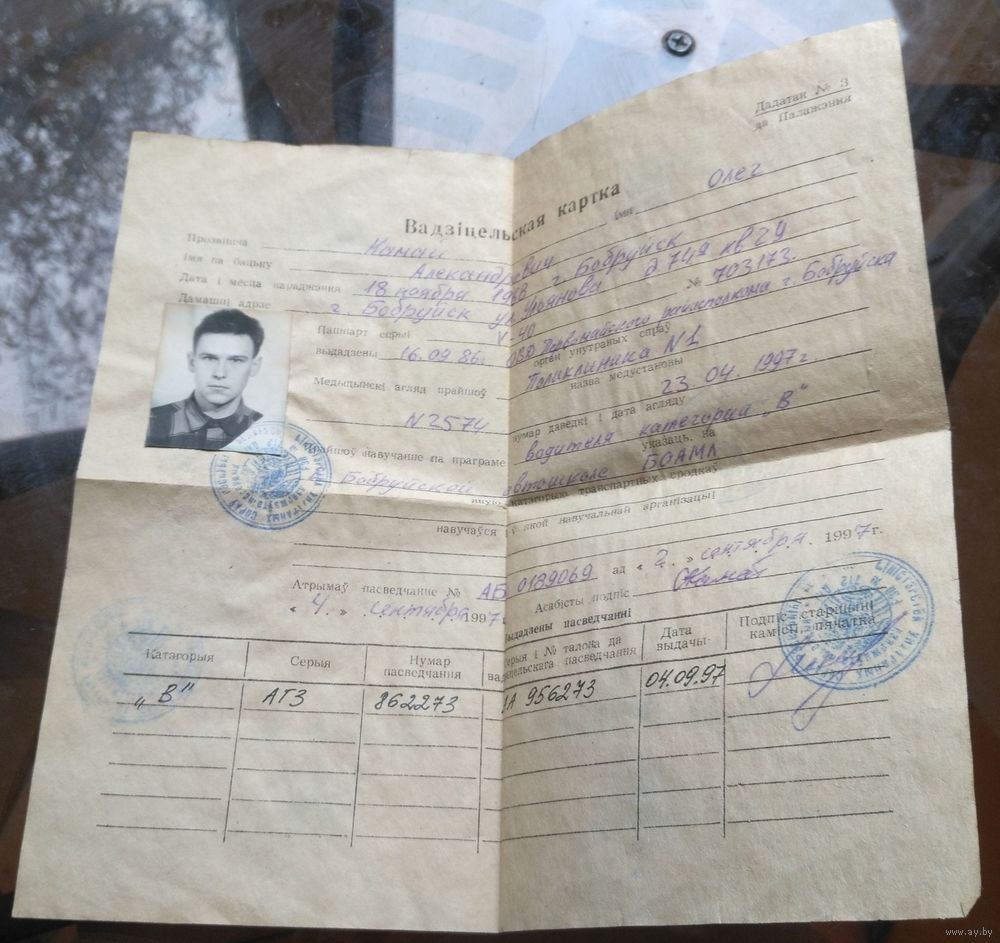 Дадатак № 3
да Палажэння
Вадзіцельская картка
Прозвішча Мамай імя Олег
імя па бацьку Александрович
Дата і месца нараджэння 18 ноября 1968 г. Бобруйск
Дамашні адрас г. Бобруйск ул. Ульянова д 74/9 кв 29
Пашпарт серыі V-40 № 703173.
выдадзены 16.09.86г. ОВД Первомайского райисполкома г. Бобруйска
орган унутраных спраў
Медыцынскі агляд прайшоў Поликлиника N 1
назва медустановы
N 2574 23.04.1997г
нумар даведкі і дата агляду
Прайшоў навучанне па праграме водителя категории „В"
указаць, на
Бобруйской автошколе БОАМЛ
якую катэгорыю транспартных сродкаў
навучаўся і ў якой навучальнай арганізацыі
Атрымаў пасведчанне № АБ 0189069 ад « 2. » сентября. 1997г.
« 4. » сентября 1997г. Асабісты подпіс
Выдадзены пасведчанні
Катэгорыя Серыя Нумар пасведчання Серыя і № талона да вадзіцельскага пасведчання Дата выдачы Подпіс старшыні камісіі, пячатка
„В" АТЗ 862273 956273 04.09.97
www.ay.by